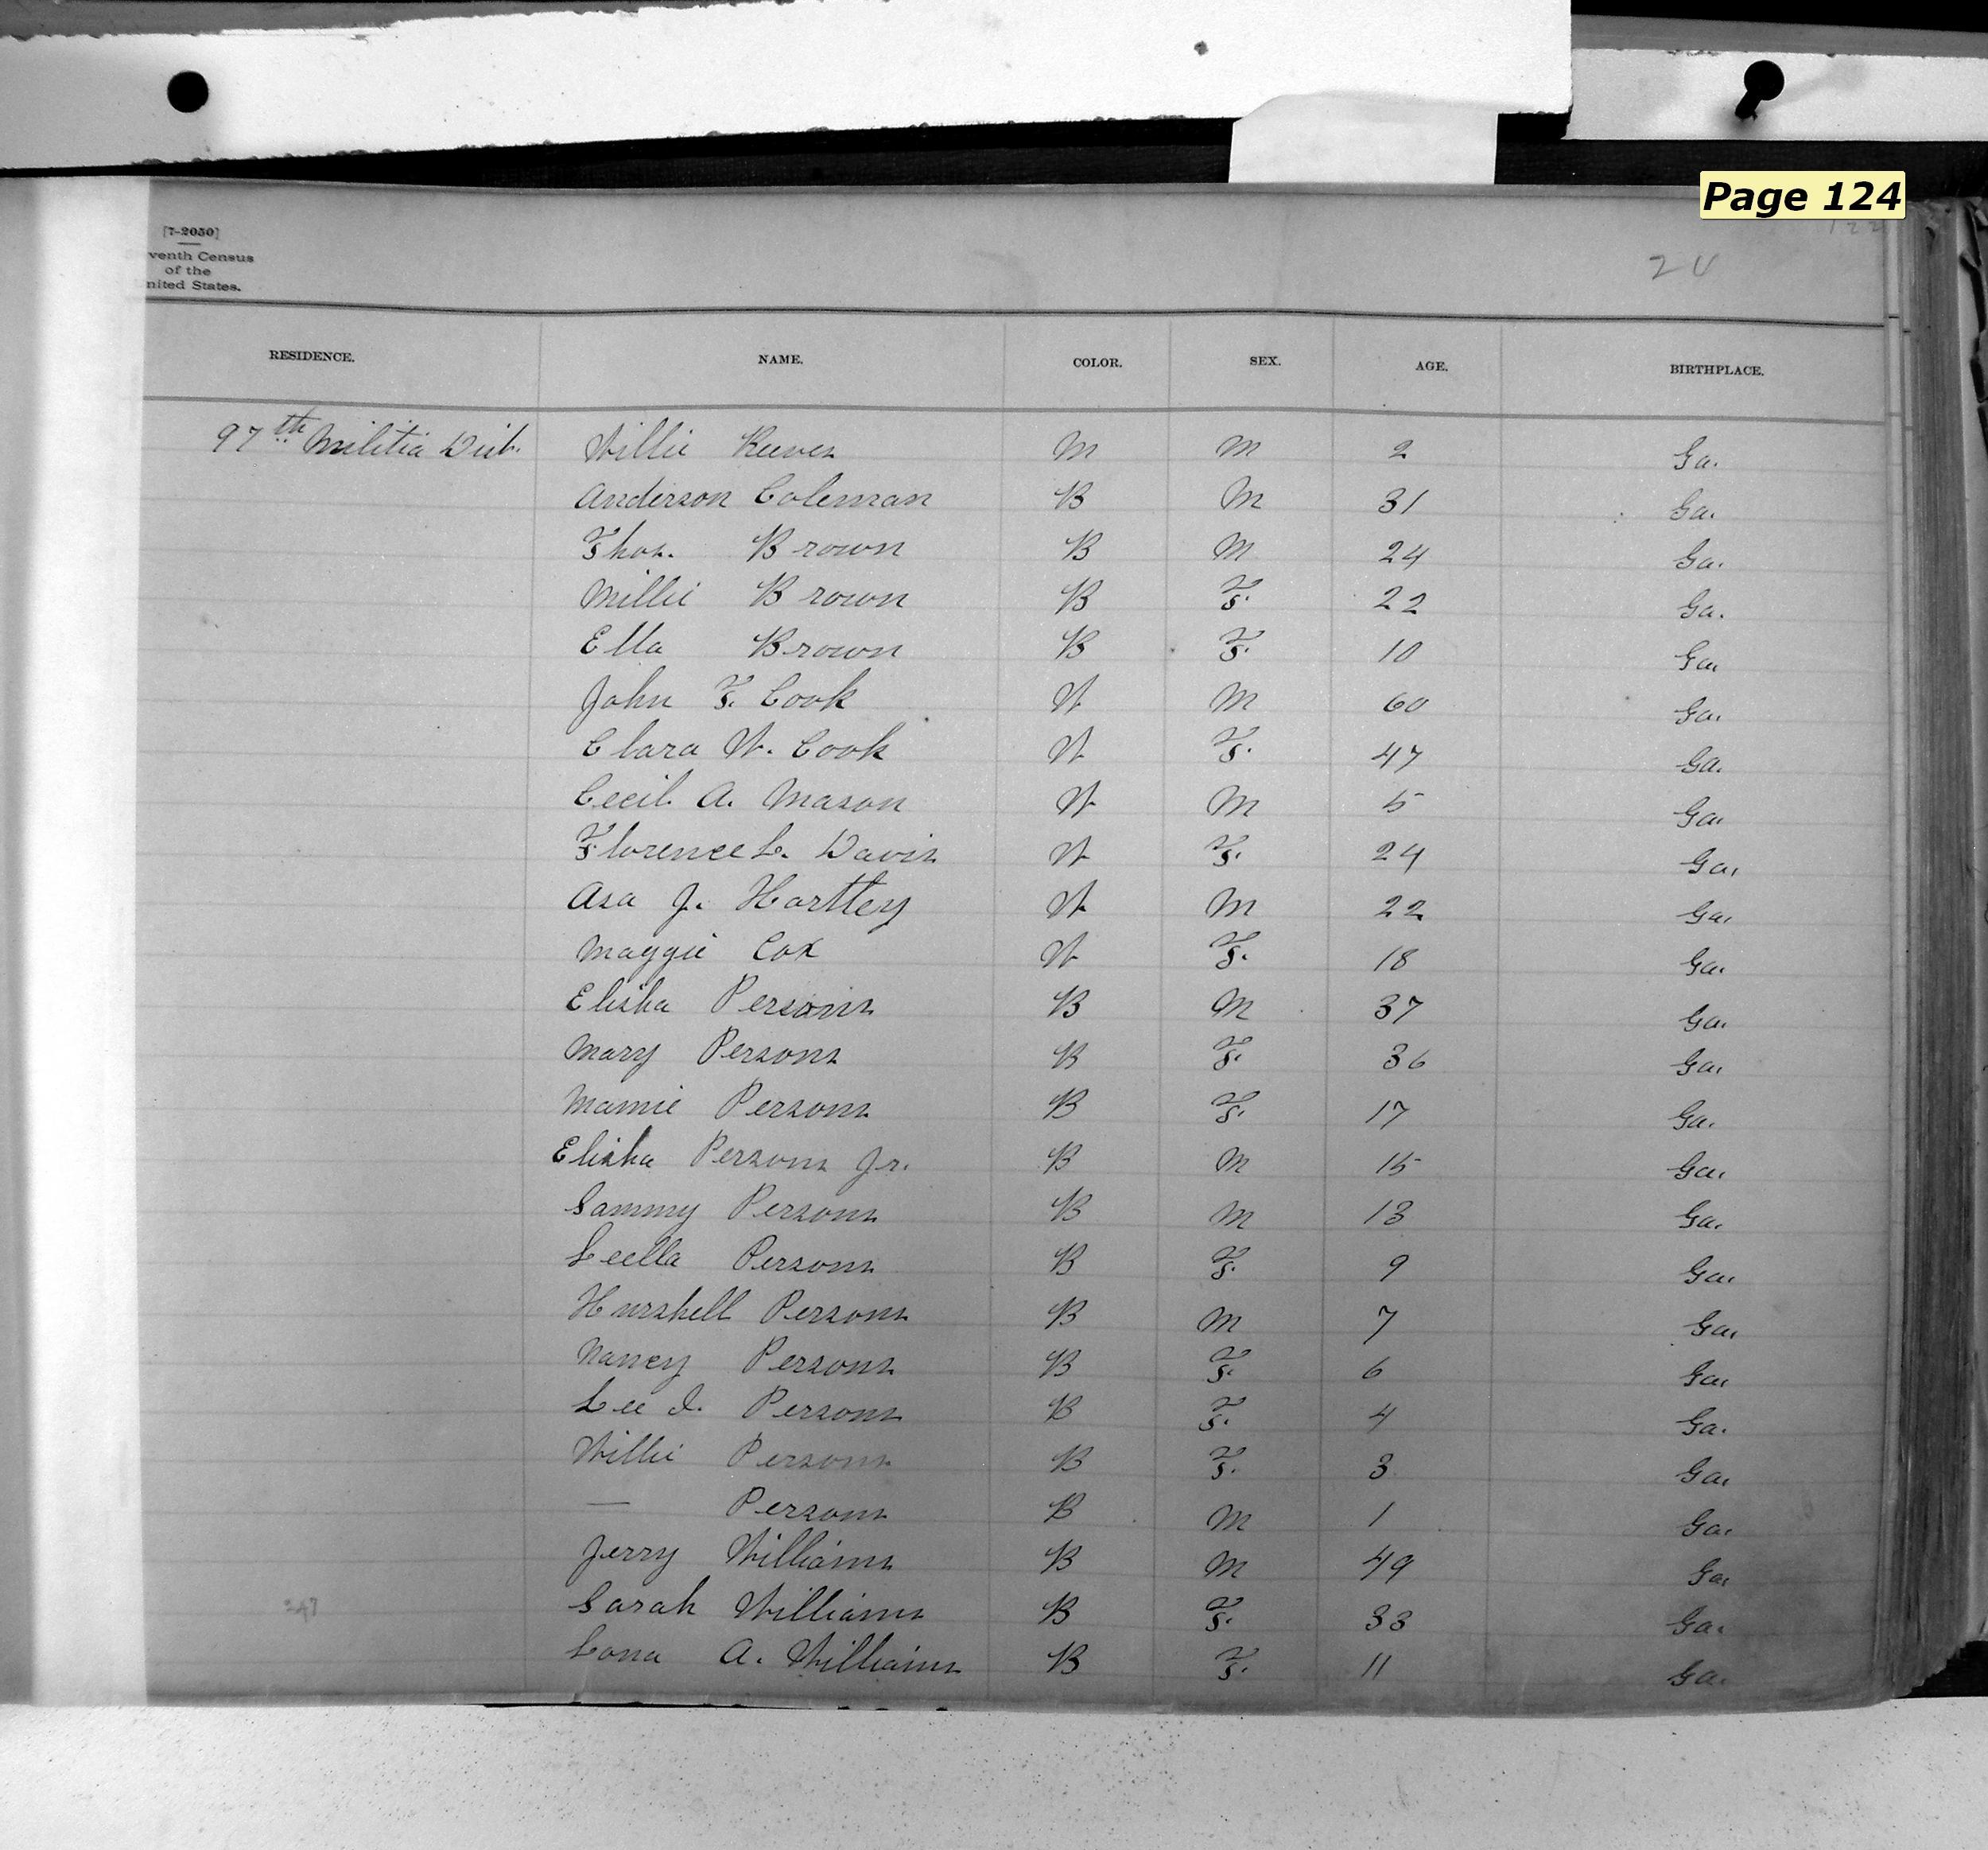 Page 124
[7-2050]
venth Census
of the
nited States.
24
RESIDENCE. NAME. COLOR. SEX. AGE. BIRTHPLACE.
97th Militia Dist. Willie Reeves M M 2 Ga.
Anderson Coleman B M 31 Ga.
Thos. Brown B M 24 Ga.
Millie Brown B F. 22 Ga.
Ella Brown B F. 10 Ga
John F. Cook W M 60 Ga.
Clara W. Cook W F. 47 Ga.
Cecil A. Mason W M 5 Ga.
Florence L. Davis W F. 24 Ga.
Asa J. Hartley W M 22 Ga.
Maggie Cox W F. 18 Ga.
Elisha Persons B M 37 Ga.
Mary Persons B F. 36 Ga.
Mamie Persons B F. 17 Ga.
Elisha Persons Jr. B M 15 Ga.
Sammy Persons B M 13 Ga.
Leella Persons B F. 9 Ga.
Hurshell Persons B M 7 Ga.
Nancy Persons B F. 6 Ga.
Lee I. Persons B F. 4 Ga.
Willie Persons B F. 3 Ga.
— Persons B M 1 Ga.
Jerry Williams B M 49 Ga.
Sarah Williams B F. 33 Ga.
Lona A. Williams B F. 11 Ga.